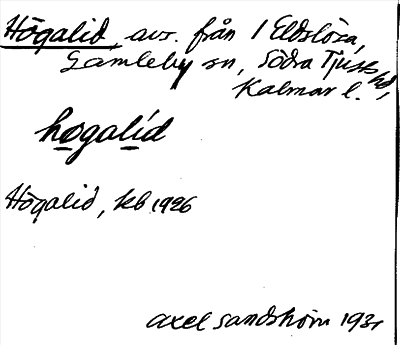 Högalid, avs. från 1 Eldslösa,
Gamleby sn, Södra Tjusts hd,
Kalmar l.
hogalíd
Högalid, kb 1926
Axel Sandström 1931